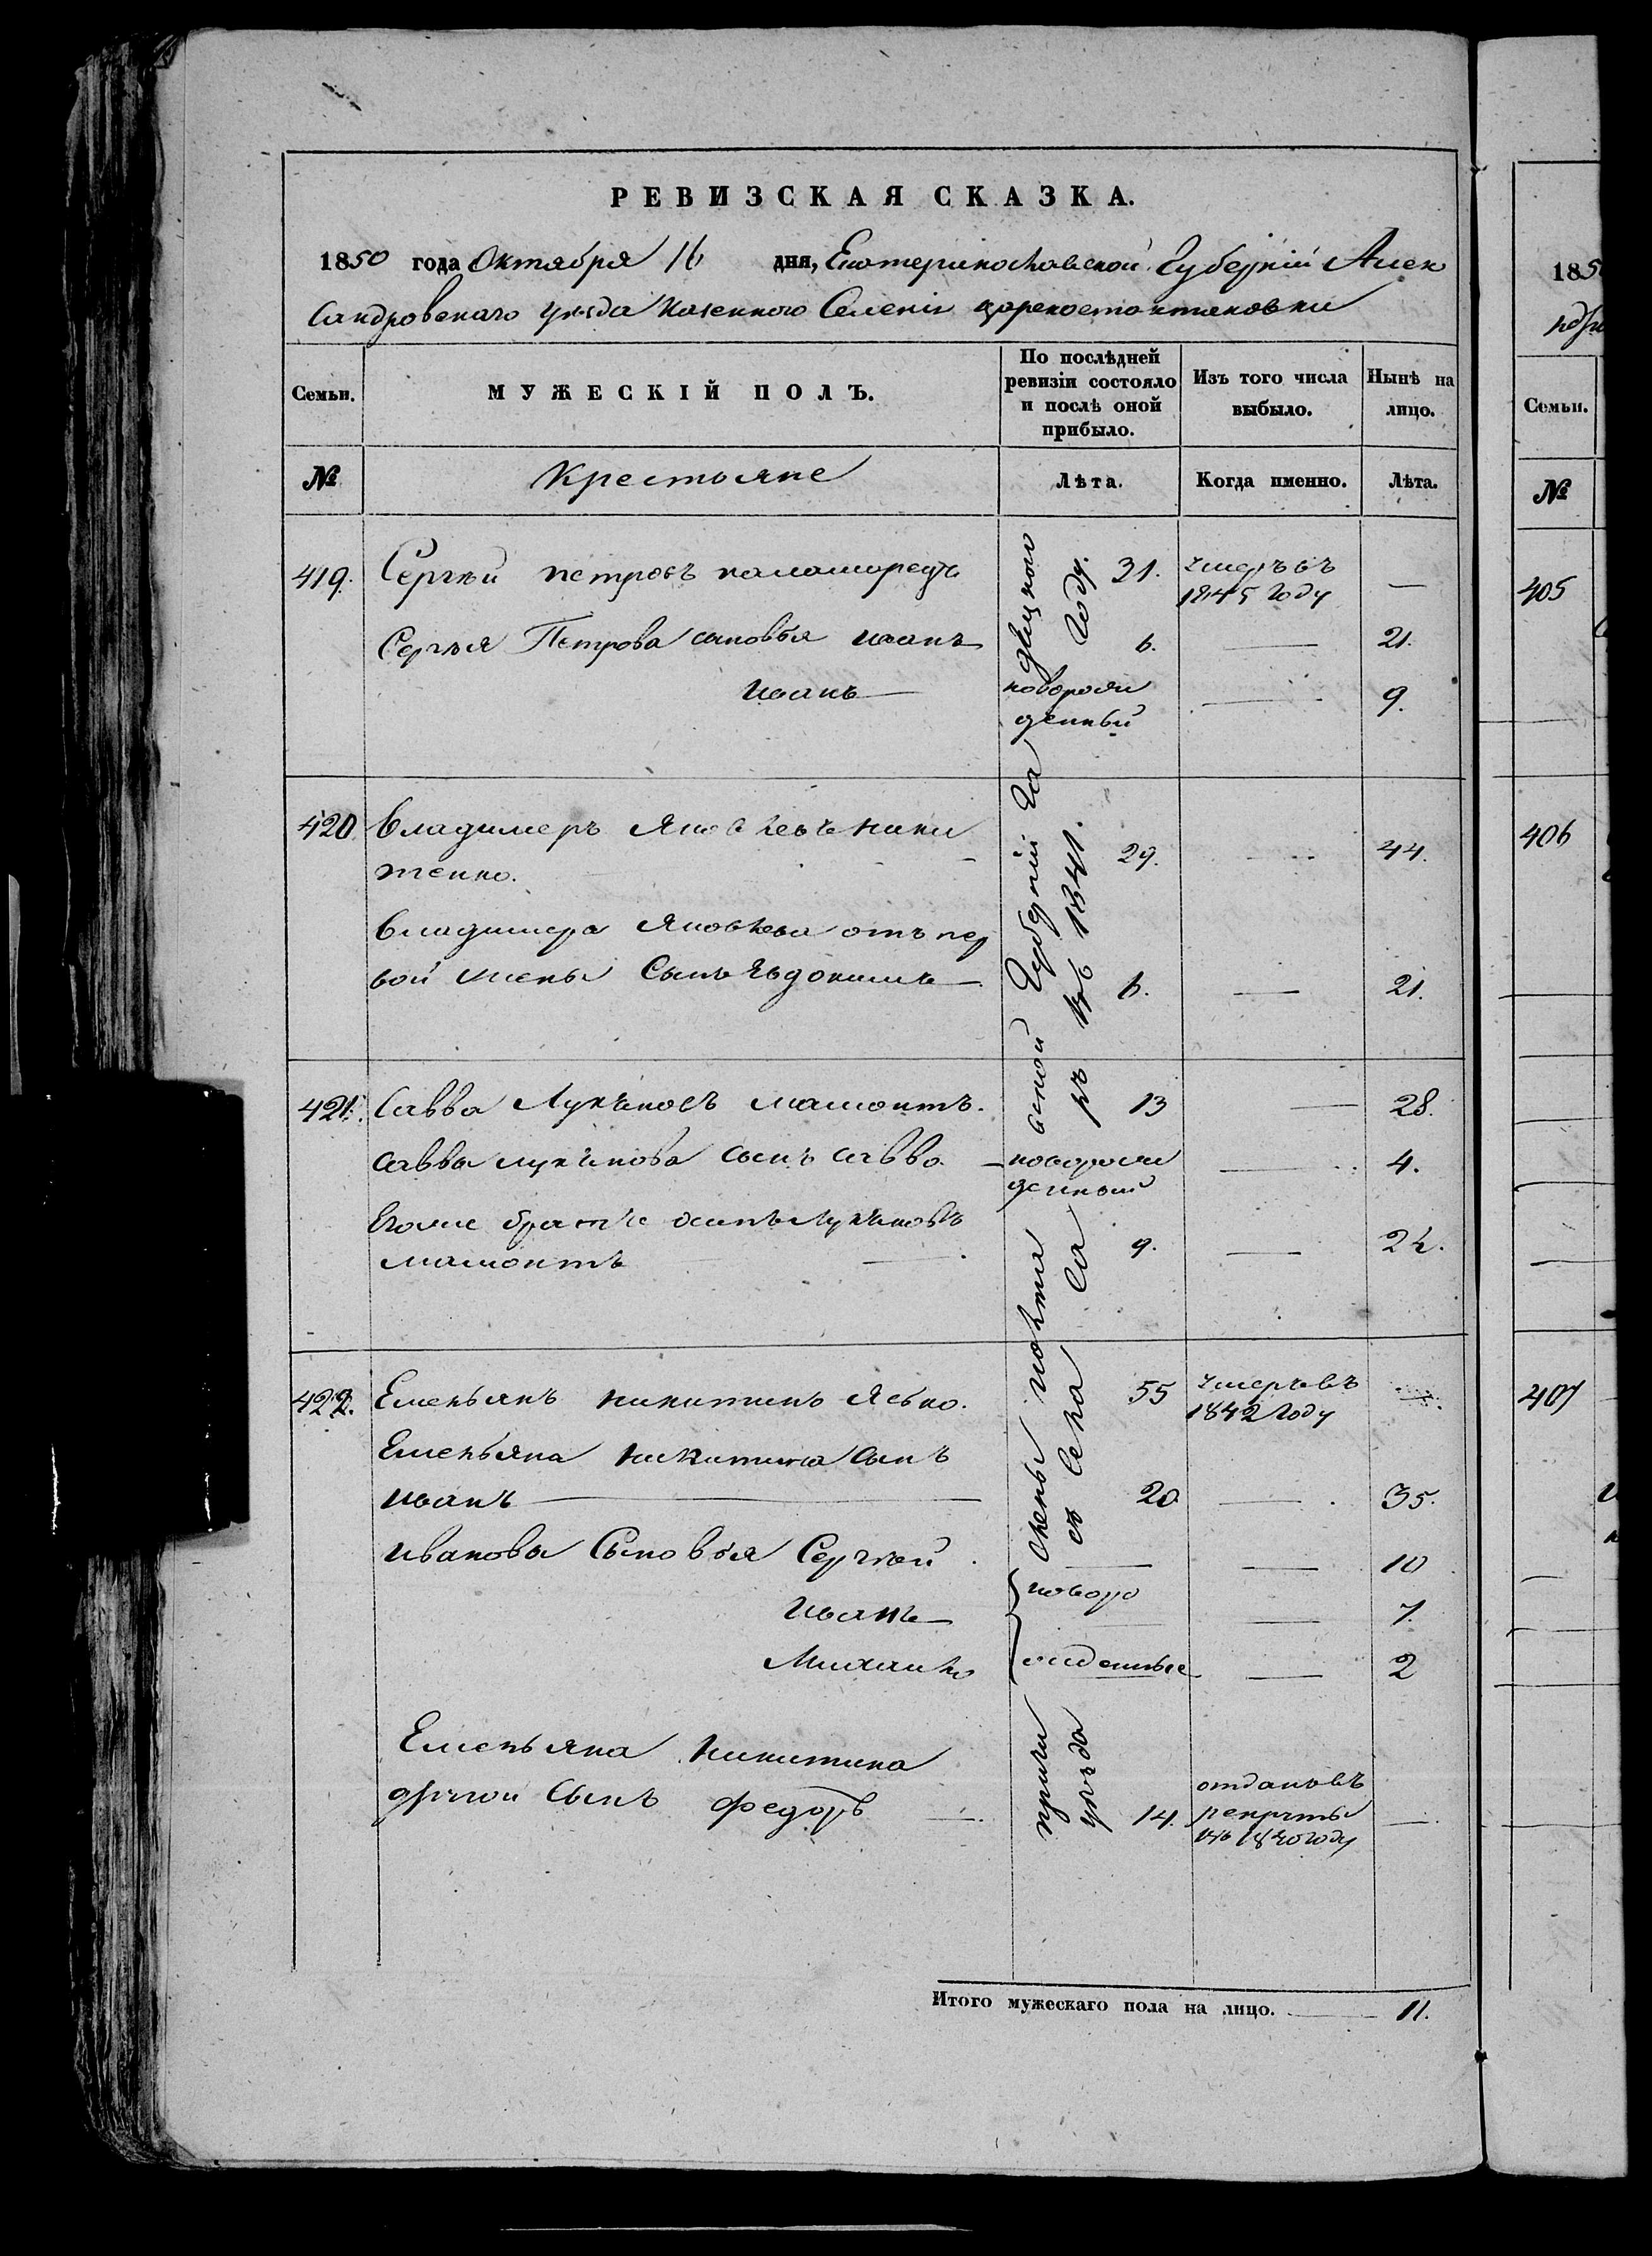 РЕВИЗСКАЯ СКАЗКА.
1850 года Октября 16 дня, Екатеринославской Губерніи Алек
сандровскаго уѣзда казенного Селенія Цареконстантиновки
Семьи.
МУЖЕСКІЙ ПОЛЪ.
По послѣдней ревизіи состояло и послѣ оной прибыло.
Изъ того числа выбыло.
Нынѣ на лицо.
№
Крестьяне
Лѣта.
Когда именно.
Лѣта.
419. Сергѣй Петровъ 31. умеръ въ 1845 году —
Сергѣя Петрова сыновья Иванъ 6. — 21.
Иванъ — новорожденный — 9.
420. Владимеръ Яковлевъ Ники
тенко. 29. — 44.
Владимера Яковлева отъ пер
вой жены Сынъ Евдокимъ — 6. — 21.
421. Савва Лукьяновъ Мамонтъ. 13 — 28.
Саввы Лукьянова Сынъ Савва — новорожденный — 4.
Его же братъ Осипъ Лукьяновъ
Мамонтъ 9. — 24.
422. Емельянъ Никитинъ 55 умеръ въ 1842 году —
Емельяна Никитина Сынъ
Иванъ — 20 — 35.
Ивановы Сыновья Сергѣй — — 10
Иванъ — новоро — 7.
Михаилъ жденные — 2
Емельяна Никитина
другой Сынъ Федоръ 14. отданъ въ рекруты въ 1840 году —
причи
слены Полта
вской Губерніи Га
дяцкого
уѣзда
съ села Са
ръ въ 1841.
Году.
Итого мужескаго пола на лицо. — 11.
185
Семьи.
№
405
406
407